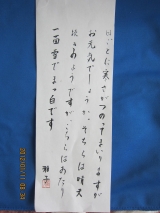 日ごとに寒さがつのってまいりますが
お元気でしょうか。そちらは晴天
続きのようですが、こちらはあたり
一面雪でまっ白です
雅子